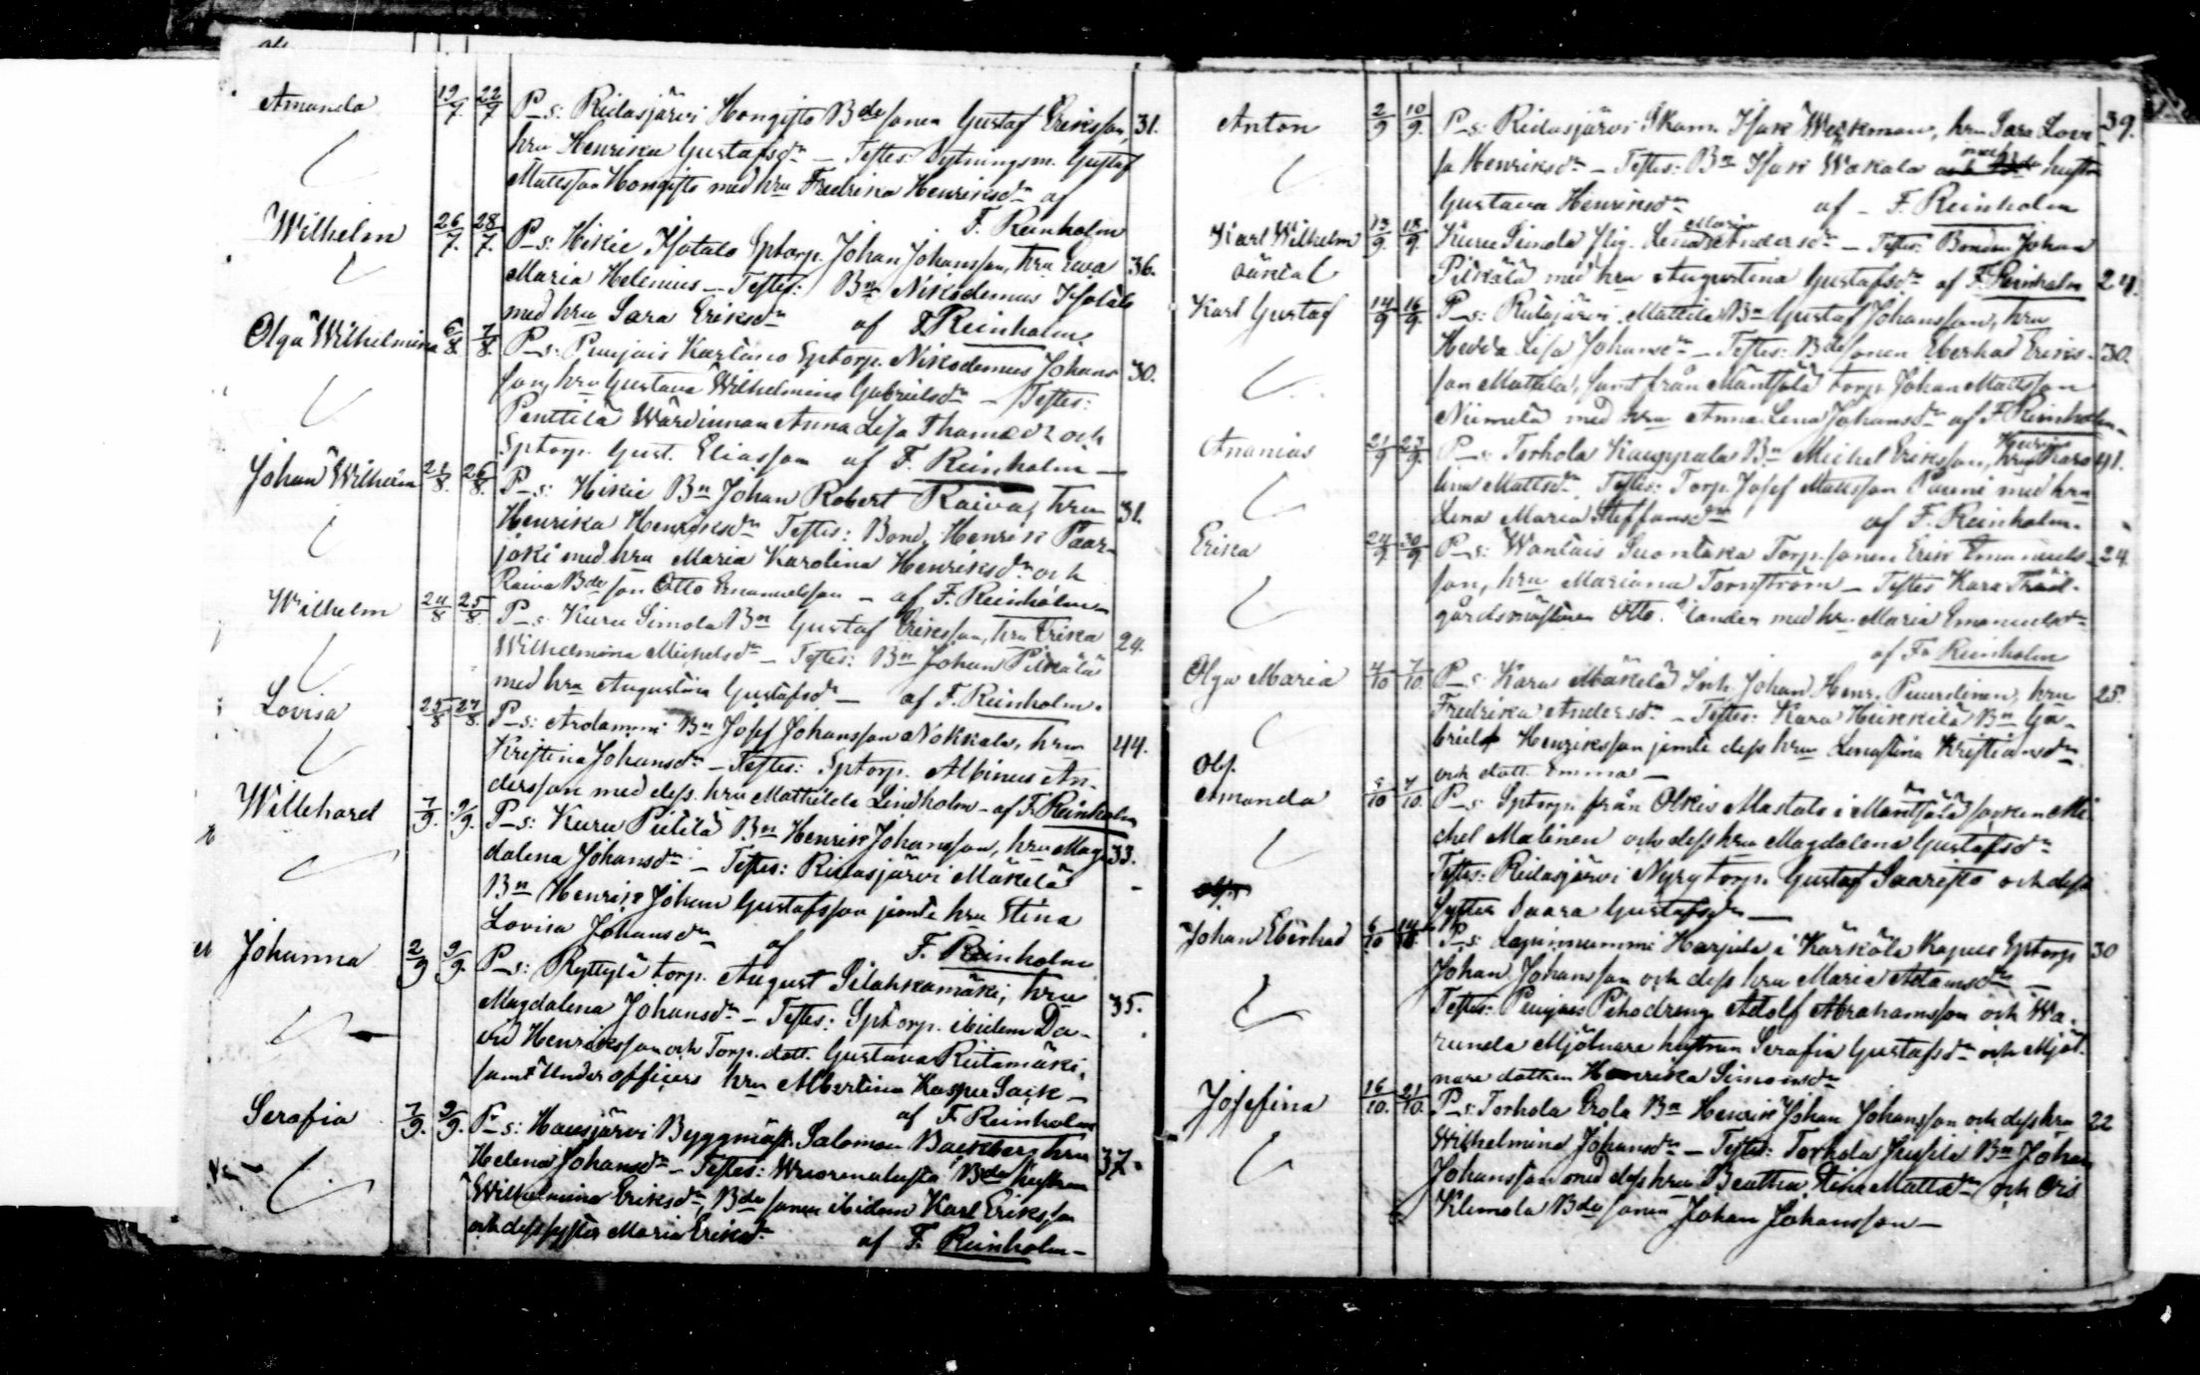 Amanda 19/7. 22/7 P_s: Ridasjärvi Hongisto Bdesonen Gustaf Eriksson, 31.
hru Henrika Gustafsdr _ Testes: Sytningsm. Gustaf
Mattsson Hongisto med hru Fredrika Henriksdr af
F. Reinholm
Wilhelm 26/7. 28/7. P_s: Hikie Isotalo Sptorp. Johan Johansson, hru Ewa 36.
Maria Helenius _ Testes: Bn Nikodemus Isotalo
med hru Sara Eriksdr af F. Reinholm.
Olga Wilhelmina 6/8. 7/8. P_s: Punjais Sptorp. Nikodemus Johans 30.
son, hru Gustava Wilhelmina Gabrielsdr _ Testes:
Penttilä Wärdinnan Anna Lisa och
Sptorp. Gust. Eliasson af F. Reinholm _
Johan Wilhelm 21/8. 26/8. P_s: Hikie Bn Johan Robert Raiva, hru 31.
Henrika Henriksdr Testes: Bond. Henrik Paar-
joki med hru Maria Karolina Henriksdr och
Raiva Bdeson Otto Emanuelsson _ af F. Reinholm
Wilhelm 24/8 25/8. P_s: Kuru Simola Bn Gustaf Eriksson, hru Erika 24.
Wilhelmina Michelsdr _ Testes: Bn Johan Pitkälä
med hru Augustina Gustafsdr _ af F. Reinholm.
Lovisa 25/8 27/8. P_s: Bn Josef Johansson Nokkala, hru 44.
Kristina Johansdr _ Testes: Sptorp. Albinus An-
dersson med dess hru Mathilda Lindholm _ af F. Reinholm
Willehard 7/9. 9/9. P_s: Kuru Bn Henrik Johansson, hru Mag- 33.
dalena Johansdr _ Testes: Ridasjärvi Mäkelä
Bn Henrik Johan Gustafsson jemte hru Stina
Lovisa Johansdr af F. Reinholm
Johanna 2/9 9/9. P_s: Ryttylä torp. August hru 35.
Magdalena Johansdr _ Testes: Sptorp. ibidem Da-
vid Henriksson och Torp.dott. Gustava Riitamäki,
samt Underofficers hru Albertina _
af F. Reinholm
Serafia 7/9. 9/9. P_s: Hausjärvi Byggmäst. Salomon Backberg hru 37.
Helena Johansdr _ Testes: Bde hustrun
Wilhelmina Eriksdr, Bdesonen ibidem Karl Eriksson
och dess syster Maria Eriksdr af F. Reinholm _
Anton 2/9 10/9. P_s: Ridasjärvi Skom. Isak Weckman, hru Sara Lovi- 39.
sa Henriksdr _ Testes: Bn Isak Wakala med hustru
Gustava Henriksdr af _ F. Reinholm
Karl Wilhelm 13/9 18/9. Kuru Simola Pig. Lena Maria Andersdr _ Testes: Bonden Johan
oäkta Pitkälä med hru Augustina Gustafsdr af F. Reinholm 24.
Karl Gustaf 14/9 16/9. P_s: Ridasjärvi Mattila Bn Gustaf Johansson, hru
Hedda Lisa Johansdr _ Testes: Bdesonen Eberhard Eriks- 30.
son Mattila, samt från Mäntsälä torp. Johan Mattsson
Niemelä med hru Anna Lena Johansdr af F. Reinholm _
Ananias 21/9 27/9. P_s: Torhola Kauppala Bn Michel Eriksson, hru Karo- 41.
lina Mattsdr Testes: Torp. Josef Mattsson med hru
Lena Maria Steffansdr af F. Reinholm.
Erika 24/9 30/9 P_s: Wantais Suontaka Torp.sonen Erik Emanuels- 24.
son, hru Mariana Tornström _ Testes Kara Träd-
gårdsmästaren Otto med hru Maria Emanuelsdr
af F. Reinholm
Olga Maria 4/10 7/10. P_s: Kara Mäkelä Inh. Johan Henr. Puurtinen, hru 25.
Fredrika Andersdr _ Testes: Kara Heikkilä Bn Ga-
briel Henriksson jemte dess hru Lenastina Kristiansdr
och dott. Emma _
Olg.
Amanda 5/10 7/10. P_s: Sptorp. från Olkis Mastala i Mäntsälä socken Mi-
chel Malinen och dess hru Magdalena Gustafsdr
Testes: Ridasjärvi Nyrytorp. Gustaf Saaristo och dess
syster Saara Gustafsdr _
Johan Eberhard 6/10 14/10. P_s: Lopinnummi Harjula i Kärkölä Kapell Sptorp 30
Johan Johansson och dess hru Maria Adamsdr _
Testes: Punjais Adolf Abrahamsson och Wa-
runda Mjölnare hustrun Serafia Gustafsdr och Mjöl-
nare dottren Henrika Simonsdr
Josefina 16/10. 21/10. P_s: Torhola Erola Bn Henrik Johan Johansson och dess hru 22
Wilhelmina Johansdr _ Testes: Torhola Bn Johan
Johansson med dess hru Beatha Stina Mattsdr och Ois
Klemola Bdesonen Johan Johansson _